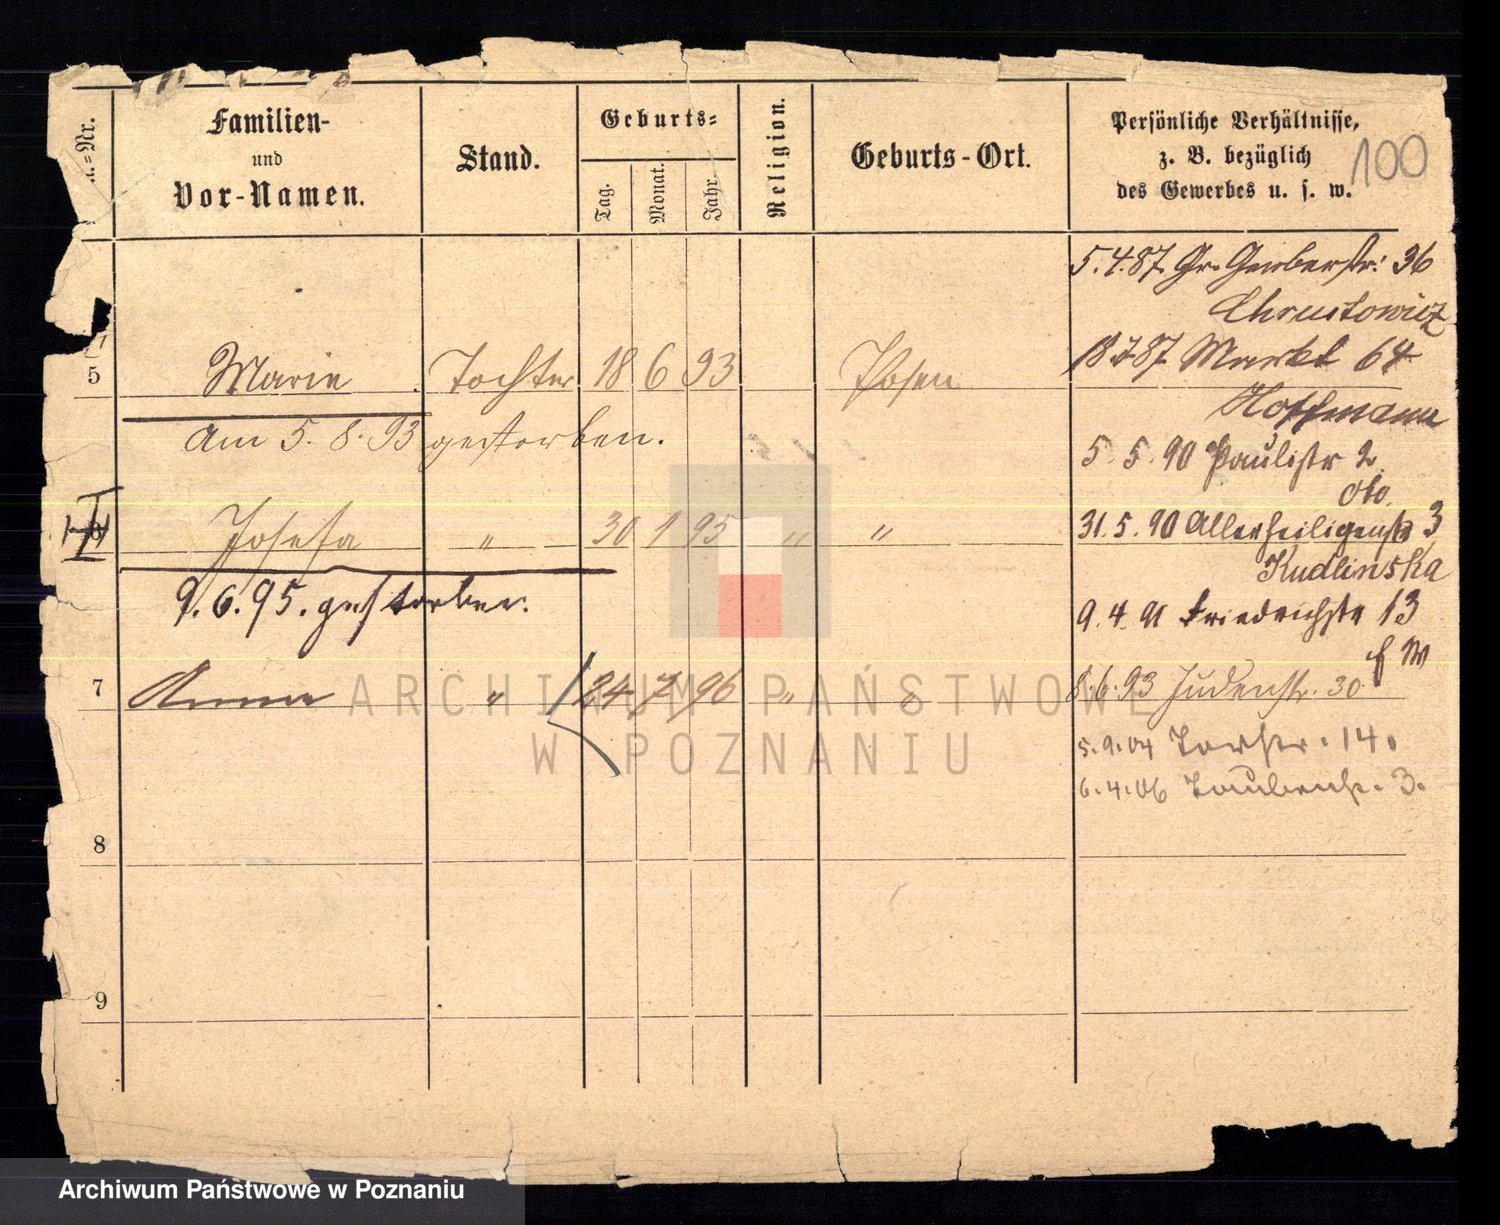 u.=Nr.
Familien-
und
Vor-Namen.
Stand.
Geburts=
Tag.
Monat.
Jahr.
Religion.
Geburts-Ort.
Persönliche Verhältnisse,
z. B. bezüglich
des Gewerbes u. s. w.
100
5.4.87. Gr. Gerberstr. 36
Chrustowicz
18.7.87 Markt 64
Hoffmann
5 Marie Tochter 18 6 93 Posen
am 5. 8. 93 gestorben.
5. 5. 90 Paulistr 2
31.5.90 Allerheiligenstr 3
Kudlinska
Josefa " 30 1 95 " "
9.6.95. gestorben.
9.4.91 Friedrichstr 13
7 Anna " 24 7 96 " "
8.6.93 Judenstr. 30
5.9.04 Torstr. 14.
6.4.06 Taubenstr. 3.
8
9
ARCHIWUM PAŃSTWOWE
W POZNANIU
Archiwum Państwowe w Poznaniu